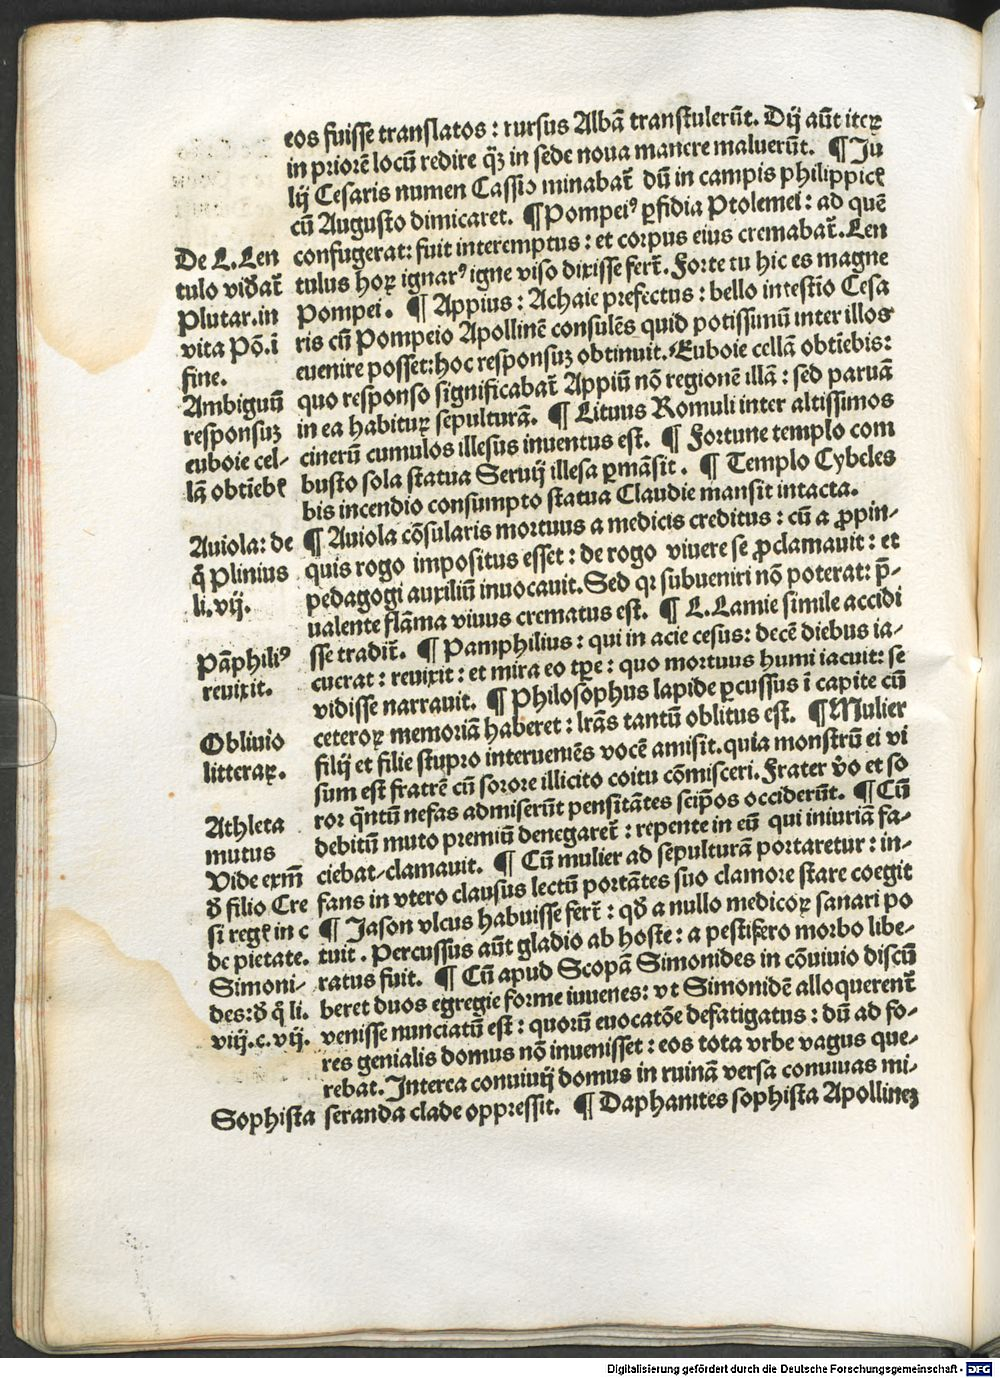 eos fuisse translatos : rursus Albā transtulerūt. Dij aūt iteꝝ
in priorē locū redire q̄ꝫ in sede noua manere maluerūt. ¶ Ju
lij Cesaris numen Cassio minabat̄ dū in campis philippicꝭ
cū Augusto dimicaret. ¶ Pompeiꝰ ꝑfidia Ptolemei : ad quē
confugerat: fuit interemptus : et corpus eius cremabat̄. Len
tulus hoꝝ ignarꝰ igne viso dixisse fert̄. Forte tu hic es magne
Pompei. ¶ Appius : Achaie prefectus : bello intestīo Cesa
ris cū Pompeio Apollinē consulēs quid potissimū inter illos
euenire posset: hoc responsuꝫ obtinuit. Euboie cellā obtīebis:
quo responso significabat̄ Appiū nō regionē illā : sed paruā
in ea habituꝝ sepulturā. ¶ Lituus Romuli inter altissimos
cinerū cumulos illesus inuentus est. ¶ Fortune templo com
busto sola statua Seruij illesa ꝑmāsit. ¶ Templo Cybeles
bis incendio consumpto statua Claudie mansit intacta.
¶ Auiola cōsularis mortuus a medicis creditus : cū a ꝓpin-
quis rogo impositus esset : de rogo viuere se ꝓclamauit : et
pedagogi auxiliū inuocauit. Sed qꝛ subueniri nō poterat: p̄-
ualente flāma viuus crematus est. ¶ L. Lamie simile accidi
sse tradit̄. ¶ Pamphilius : qui in acie cesus: decē diebus ia-
cuerat : reuixit : et mira eo tp̄e : quo mortuus humi iacuit: se
vidisse narrauit. ¶ Philosophus lapide ꝑcussus ī capite cū
ceteroꝝ memoriā haberet : lr̄as tantū oblitus est. ¶ Mulier
filij et filie stupro interueniēs vocē amisit. quia monstrū ei vi
sum est fratrē cū sorore illicito coitu cōmisceri. Frater v̄o et so
ror q̄ntū nefas admiserūt pensitātes seip̄os occiderūt. ¶ Cū
debitū muto premiū denegaret̄ : repente in eū qui iniuriā fa-
ciebat clamauit. ¶ Cū mulier ad sepulturā portaretur : in-
fans in vtero clausus lectū portātes suo clamore stare coegit
¶ Jason vlcus habuisse fert̄ : qd̄ a nullo medicoꝝ sanari po
tuit. Percussus aūt gladio ab hoste : a pestifero morbo libe-
ratus fuit. ¶ Cū apud Scopā Simonides in cōuiuio discū
beret duos egregie forme iuuenes: vt Simonidē alloquerent̄
venisse nunciatū est : quorū euocatōe defatigatus : dū ad fo-
res genialis domus nō inuenisset : eos tota vrbe vagus que-
rebat. Interea conuiuij domus in ruinā versa conuiuas mi-
seranda clade oppressit. ¶ Daphanites sophista Apollineꝫ
De L. Len
tulo vid̄at̄
Plutar. in
vita Pō. ī
fine.
Ambiguū
responsuꝫ
euboie cel-
lā obtīebꝭ
Auiola: de
q̄ Plinius
li. vij.
Pāphiliꝰ
reuixit.
Obliuio
litteraꝝ.
Athleta
mutus
Vide exm̄
d̄ filio Cre
si regꝭ in c
de pietate.
Simoni-
des: d̄ q̄ li.
viij. c. vij.
Sophista
Digitalisierung gefördert durch die Deutsche Forschungsgemeinschaft - DFG